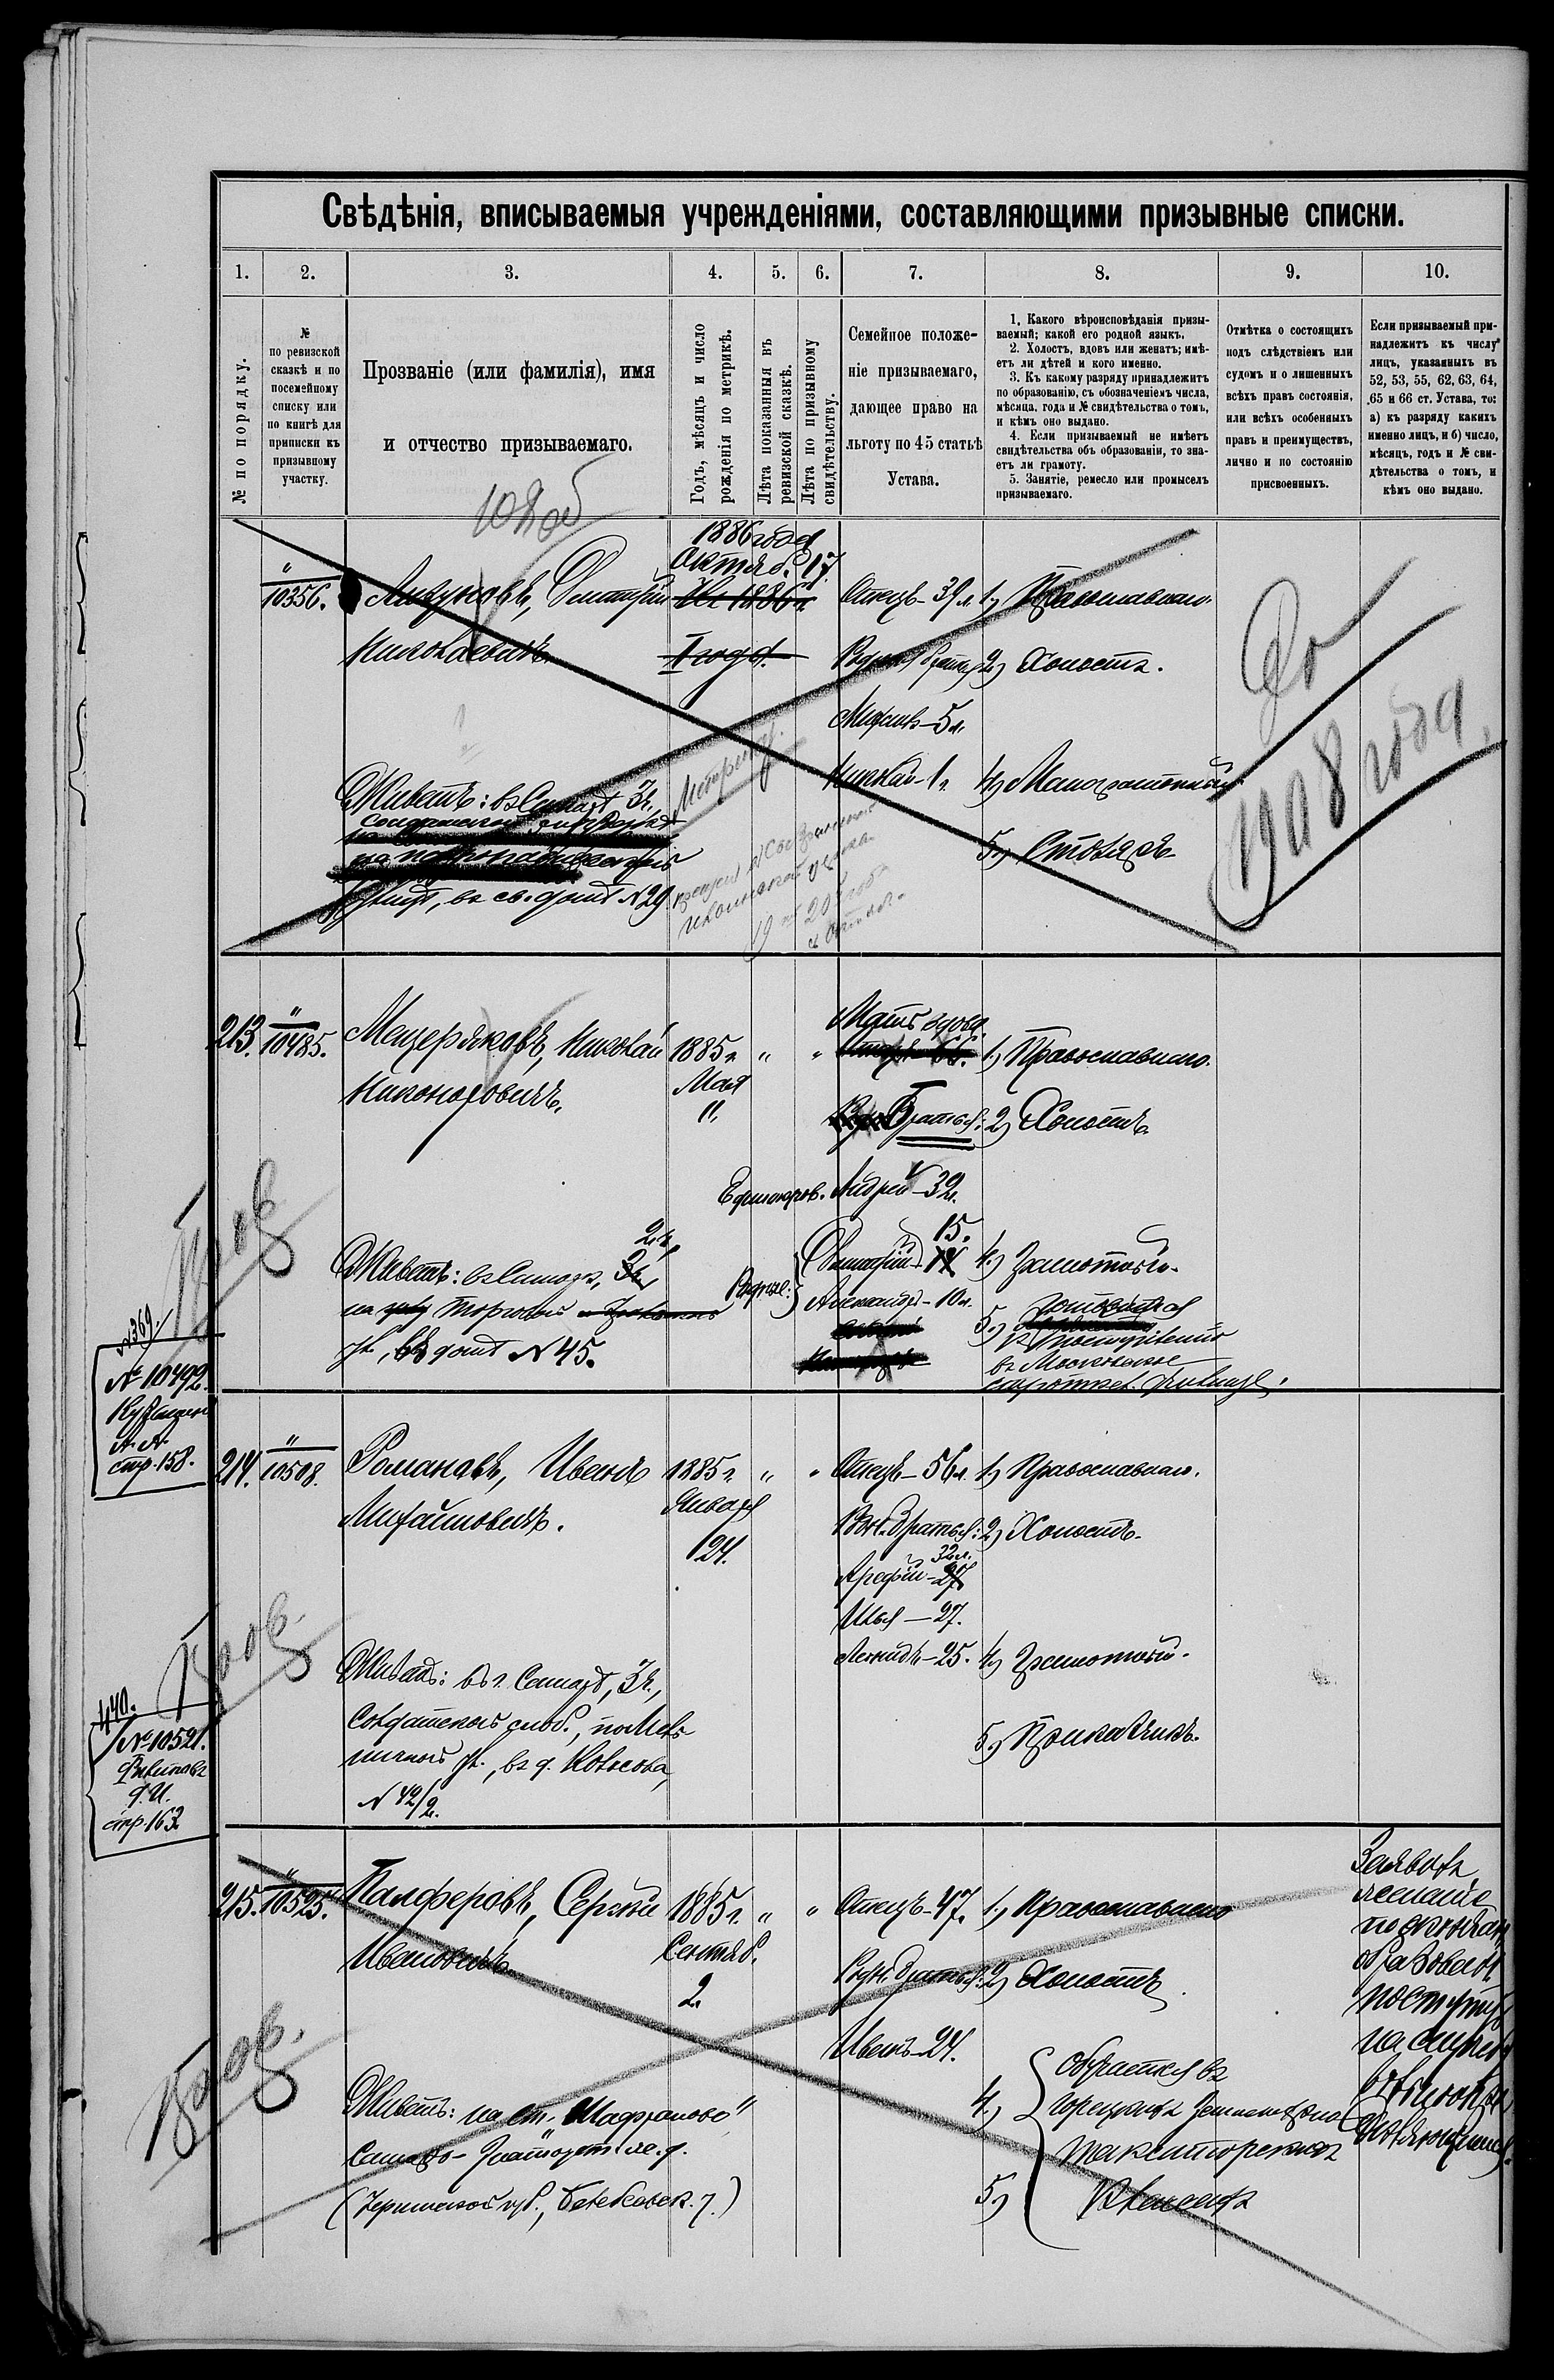 Свѣдѣнія, вписываемыя учрежденіями, составляющими призывные списки.
1. 2. 3. 4. 5. 6. 7. 8. 9. 10.
№ по порядку.
№
по ревизской
сказкѣ и по
посемейному
списку или
по книгѣ для
приписки къ
призывному
участку.
Прозваніе (или фамилія), имя
и отчество призываемаго.
Годъ, мѣсяцъ и число
рожденія по метрикѣ.
Лѣта показанныя въ
ревизской сказкѣ.
Лѣта по призывному
свидѣтельству.
Семейное положе-
ніе призываемаго,
дающее право на
льготу по 45 статьѣ
Устава.
1. Какого вѣроисповѣданія призы-
ваемый; какой его родной языкъ.
2. Холостъ, вдовъ или женатъ; имѣ-
етъ ли дѣтей и кого именно.
3. Къ какому разряду принадлежитъ
по образованію, съ обозначеніемъ числа,
мѣсяца, года и № свидѣтельства о томъ,
и кѣмъ оно выдано.
4. Если призываемый не имѣетъ
свидѣтельства объ образованіи, то зна-
етъ ли грамоту.
5. Занятіе, ремесло или промыселъ
призываемаго.
Отмѣтка о состоящихъ
подъ слѣдствіемъ или
судомъ и о лишенныхъ
всѣхъ правъ состоянія,
или всѣхъ особенныхъ
правъ и преимуществъ,
лично и по состоянію
присвоенныхъ.
Если призываемый при-
надлежитъ къ числу
лицъ, указанныхъ въ
52, 53, 55, 62, 63, 64,
65 и 66 ст. Устава, то:
а) къ разряду какихъ
именно лицъ, и б) число,
мѣсяцъ, годъ и № сви-
дѣтельства о томъ, и
кѣмъ оно выдано.
10356.
Дмитрій
Николаевичъ.
1886 года
Октяб. 17
1886 г.
I года.
Отецъ - 39 л.
Родные братья
5 л.
Николай - 1 г.
1) Православнаго.
2) Холостъ.
4) Малограмотный
5) Столяръ.
До
1908 года.
Живетъ: въ Самарѣ 3 ч.
въ св. домѣ № 29.
213. 10485.
Мещеряковъ, Николай
Никоноровичъ.
1885 г. " "
Мая
11.
Мать вдова.
Братья:
Единокров. Андрей - 32 л.
Родные:
Дмитрій 15.
Александръ - 10 л.
1) Православнаго.
2) Холостъ.
4) Грамотный.
5) Готовится
къ поступленію
въ Московское
Живетъ: въ Самарѣ, 2 ч.
на Торговой
ул., въ домѣ № 45.
№ 369.
№ 10492.
А. А.
стр. 158.
214. 10508.
Романовъ, Иванъ
Михайловичъ.
1885 г. " "
Января
24.
Отецъ - 56 л.
Род. братья:
Арефій - 27 32 л.
Илья - 27.
Леонидъ - 25.
1) Православнаго.
2) Холостъ.
4) Грамотный.
5) Приказчикъ.
Живетъ: въ г. Самарѣ, 3 ч.,
Солдатской слоб., по Мель
ничной ул., въ д. Колесова,
№ 42/2.
440.
№ 10521.
стр. 163
215. 10525.
Палферовъ, Сергѣй
Ивановичъ.
1885 г. " "
Сентяб.
2.
Отецъ - 47.
Родн. братья:
Иванъ - 24.
1) Православнаго
2) Холостъ
4)
5)
Обучается въ
Горецкомъ Землемѣрно
таксаторскомъ
классѣ
Заявилъ
желаніе
по окончан.
образован.
поступить
на службу
вольноопре
дѣляющимся.
Живетъ: на ст. "Шафраново"
Самаро-Златоуст. ж. д.
(Уфимской губ., Белебеевск. у.)